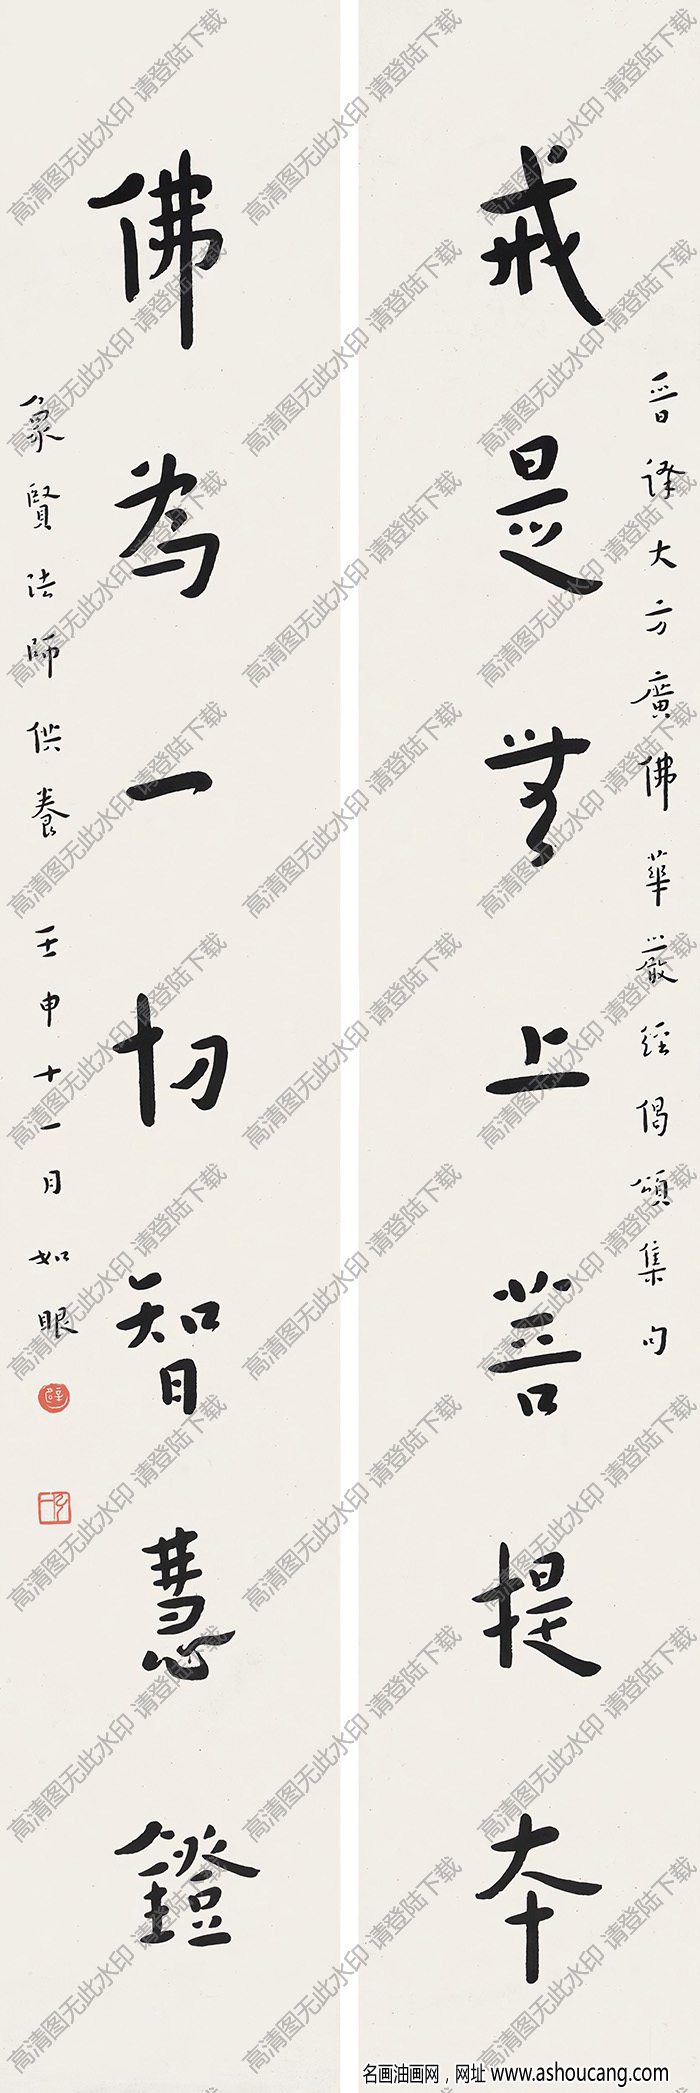 晉譯大方廣佛華嚴經偈頌集句
戒是無上菩提本
佛為一切智慧鐙
象賢法師供養 壬申十一月 如眼
高清图无此水印 请登陆下载
名画油画网，网址 www.ashoucang.com